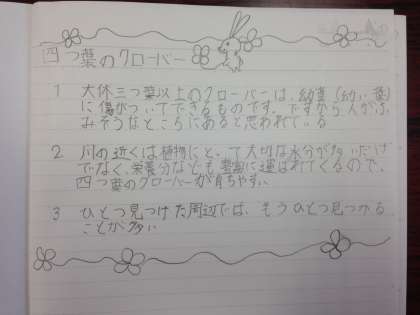 四つ葉のクローバー
1 大体三つ葉以上のクローバーは、幼葉(幼い葉)
に傷がついてできるものです。ですから人がふ
みそうなところにあると思われている
2 川の近くは植物にとって大切な水分が多いだけ
でなく、栄養分なども豊富に運ばれてくるので、
四つ葉のクローバーが育ちやすい
3 ひとつ見つけた周辺では、もうひとつ見つかる
ことが多い